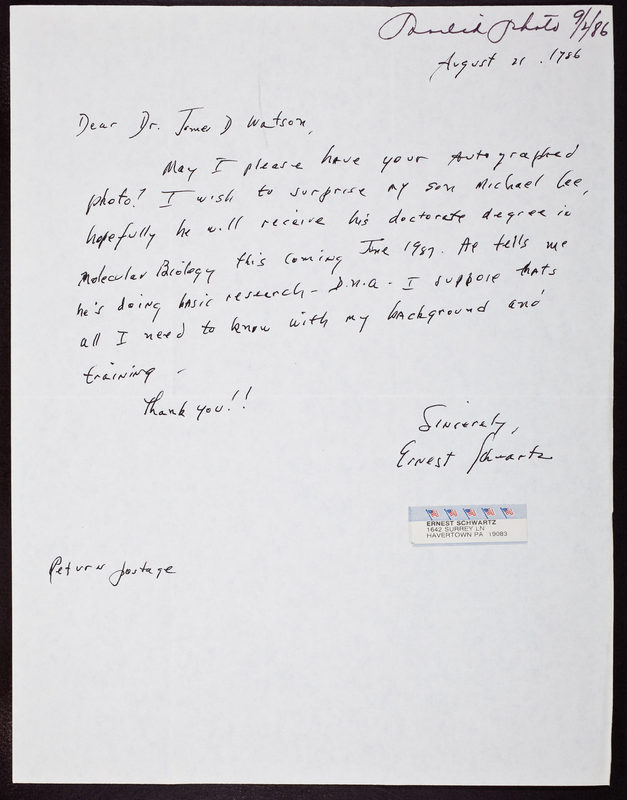 mailed photo 9/2/86
August 21, 1986
Dear Dr. James D Watson,
May I please have your Autographed
photo? I wish to surprise my son Michael Lee,
hopefully he will receive his doctorate degree in
Molecular Biology this coming June 1987. He tells me
he's doing basic research - D.N.A - I suppose thats
all I need to know with my background and
training -
Thank you!!
Sincerely,
Ernest Schwartz
ERNEST SCHWARTZ
1642 SURREY LN
HAVERTOWN PA 19083
Return postage